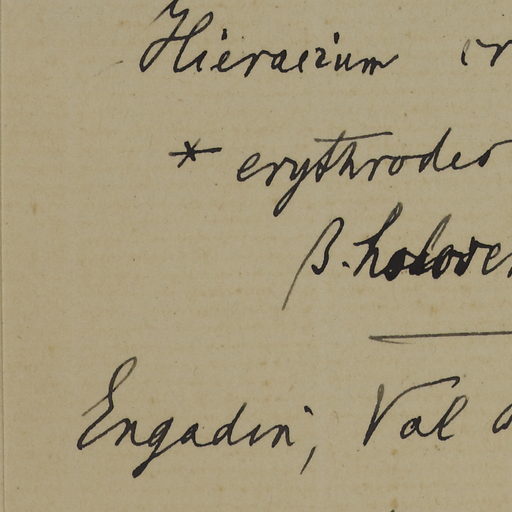 Hieracium
* erythrodes
β.
Engadin, Val